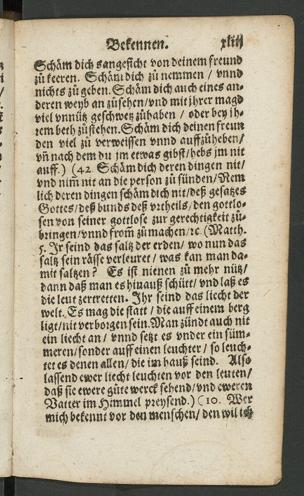 Bekennen. xliij
Schäm dich s angesicht von deinem freund
zů keeren. Schäm dich zů nemmen / vnnd
nichts zů geben. Schäm dich auch eines an-
deren weyb an zůsehen/ vnd mit jhrer magd
viel vnnütz geschwetz zůhaben / oder bey jh-
rem beth zůstehen. Schäm dich deinen freun
den viel zů verweissen vnnd auffzůheben/
vñ nach dem du jm etwas gibst/ hebs jm nit
auff.) (42. Schäm dich deren dingen nit/
vnd nim̃ nit an die person zů sünden/ Nem
lich deren dingen schäm dich nit/ deß gesatzes
Gottes/ deß bunds deß vrtheils/ den gottlo-
sen von seiner gottlose zur gerechtigkeit zů-
bringen/ vnnd from̃ zů machen/ ꝛc (Matth.
5. Ir seind das saltz der erden/ wo nun das
saltz sein rässe verleuret/ was kan man da-
mit saltzen? Es ist nienen zů mehr nütz/
dann daß man es hinauß schütt/ vnd laß es
die leut zertretten. Ihr seind das liecht der
welt. Es mag die statt / die auff einem berg
ligt/ nit verborgen sein. Man zündt auch nit
ein liecht an / vnnd setzt es vnder ein süm-
meren/ sonder auff einen leuchter / so leuch-
tet es denen allen/ die im hauß seind. Also
lassend ewer liecht leuchten vor den leuten/
daß sie ewere güte werck sehend/ vnd eweren
Vatter im Himmel preysend.) (10. Wer
mich bekennt vor den menschen/ den wil ich